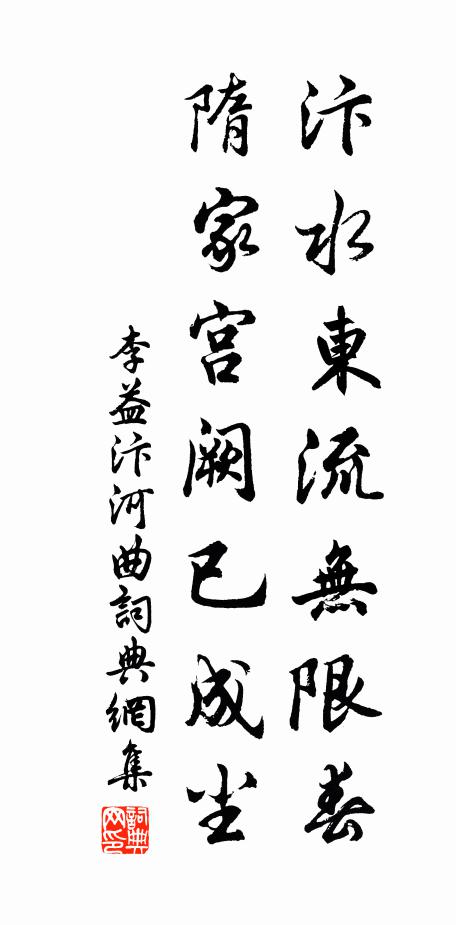 汴水東流無限春
隋家宫阙已成尘
李益汴河曲詞典網集
詞典網印